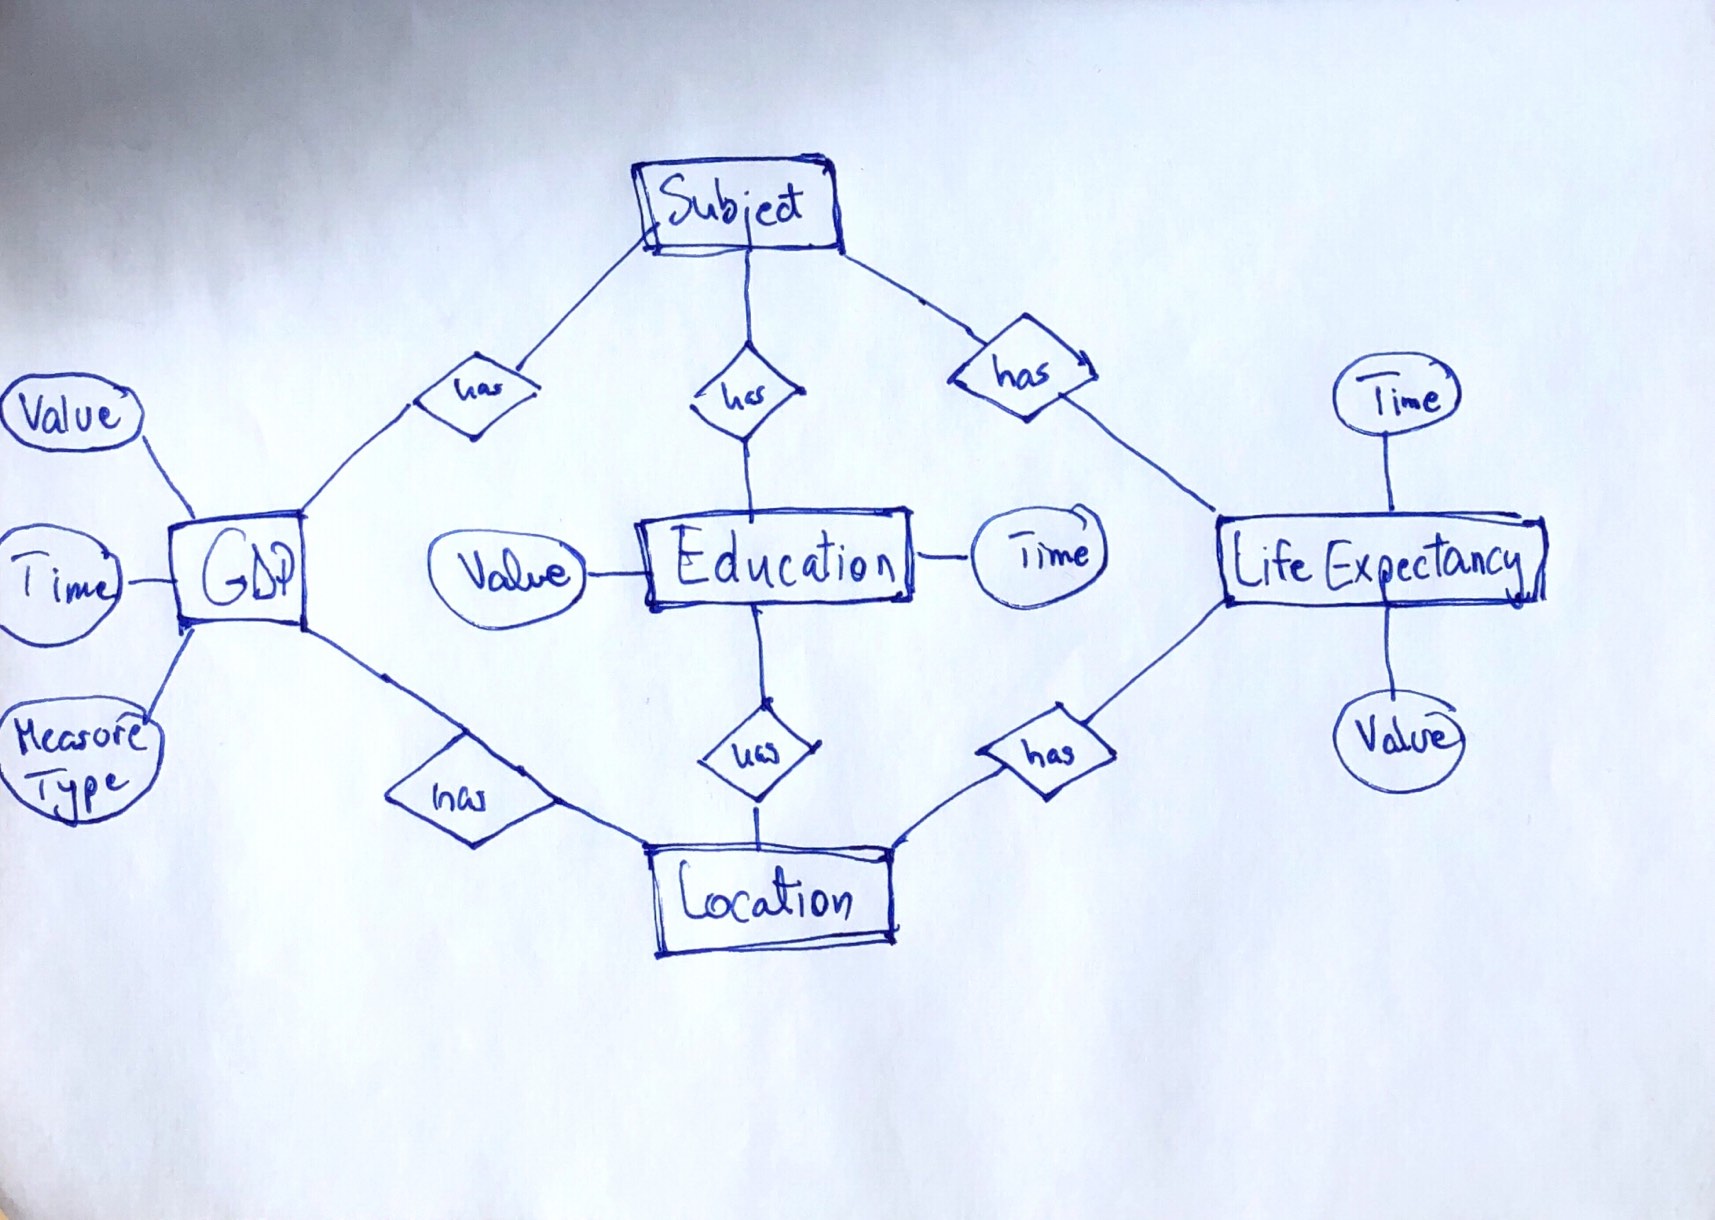 Subject
has
has
has
Value
Time
GDP
Time
Value
Education
Time
Life Expectancy
Measure
Type
Value
has
has
has
Location